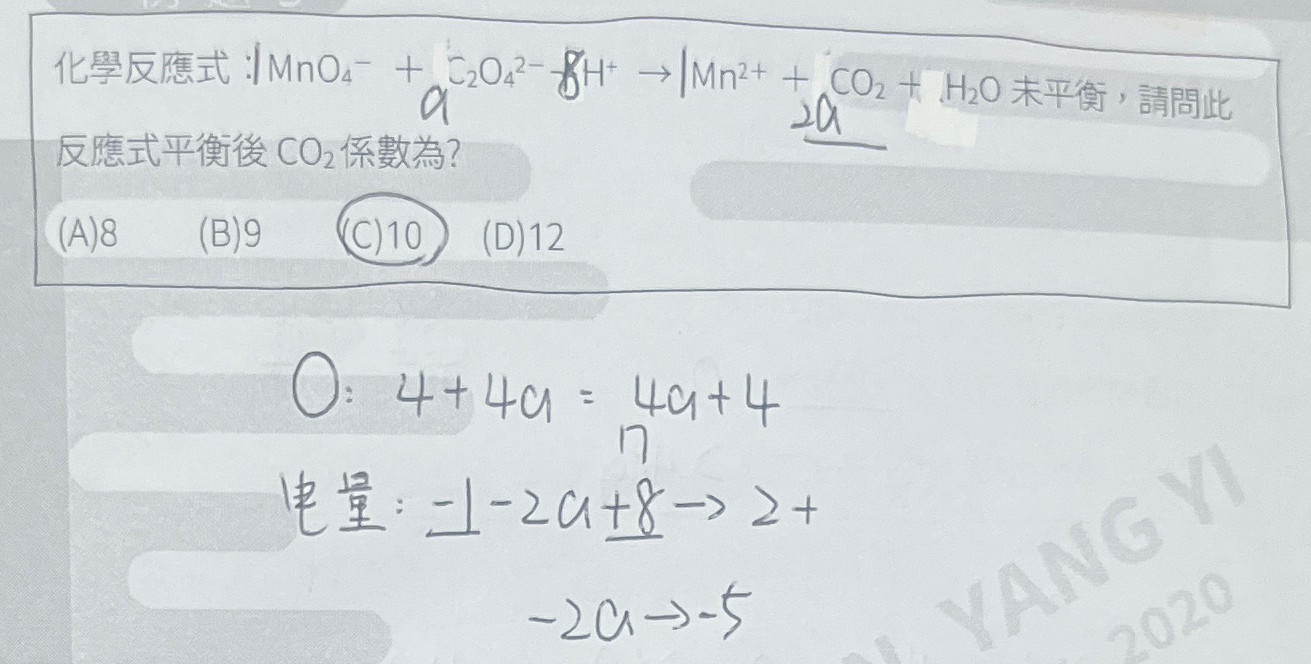 化學反應式：1MnO₄⁻ + aC₂O₄²⁻ + 8H⁺ → 1Mn²⁺ + 2aCO₂ + H₂O 未平衡，請問此
反應式平衡後 CO₂ 係數為?
(A)8 (B)9 (C)10 (D)12
O: 4+4a = 4a+4
电量: -1-2a+8→2+
-2a→-5
YANG YI
2020